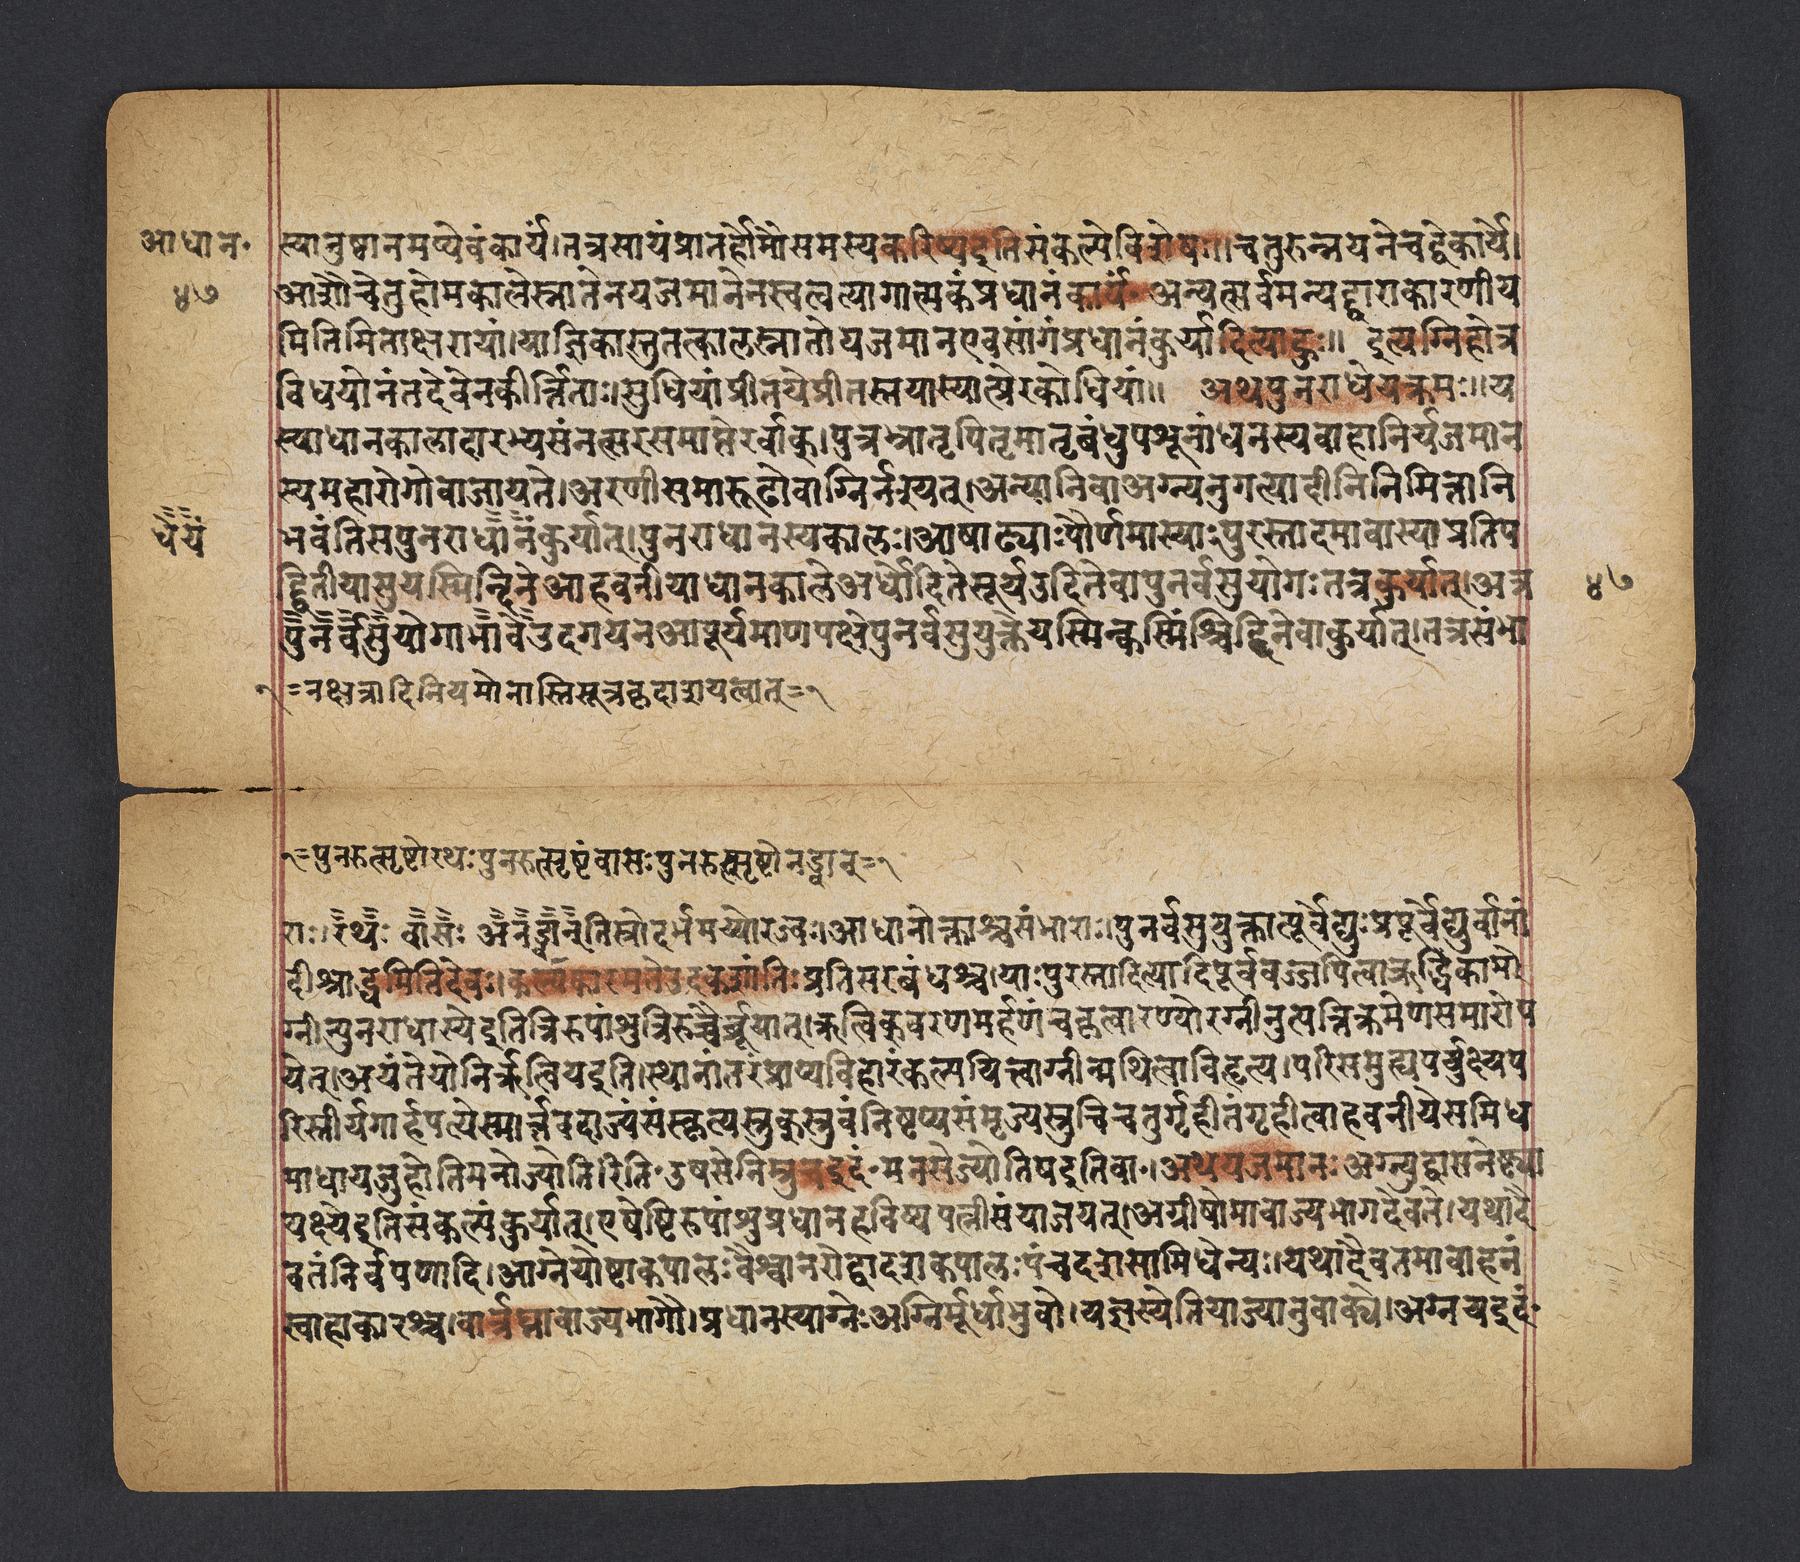 आधान॰
४७
स्यानुष्ठानमप्येवंकार्यं।तत्रसायंप्रातर्होमौसमस्यकरिष्यइतिसंकल्पेविशेषः॥चतुरुन्नयनेचद्वेकार्ये।
आशौचेतुहोमकालेस्नातेनयजमानेनस्वत्वत्यागात्मकंप्रधानंकार्यं॰ अन्यत्सर्वमन्यद्वाराकारणीय
मितिमिताक्षरायां।याज्ञिकास्तुतत्कालस्नातोयजमानएवसांगंप्रधानंकुर्यादित्याहुः॥ इत्यग्निहोत्र
विधयोनंतदेवेनकीर्त्तिताः।सुधियांप्रीतयेप्रीतस्तयास्यात्प्रेरकोधियां॥ अथपुनराधेयक्रमः॥य
स्याधानकालादारभ्यसंवत्सरसमाप्तेरर्वाक्।पुत्रभ्रातृपितृमातृबंधुपशूनांधनस्यवाहानिर्यजमान
स्यमहारोगोवाजायते।अरणीसमारूढोवाग्निर्नश्येत्।अन्यानिवाअग्न्यनुगत्यादीनिनिमित्तानि
धेयं
भवंतिसपुनराधानंकुर्यात्।पुनराधानस्यकालः।आषाढ्याःपौर्णमास्याःपुरस्तादमावास्याप्रतिप
द्द्वितीयासुयस्मिन्दिनेआहवनीयाधानकालेअर्धोदितेसूर्यउदितेवापुनर्वसुयोगःतत्रकुर्यात्।अत्र
४७
पुनर्वसुयोगाभावेउदगयनआपूर्यमाणपक्षेपुनर्वसुयुक्तेयस्मिन्कस्मिंश्चिद्दिनेवाकुर्यात्।तत्रसंभा
१=नक्षत्रादिनियमोनास्तिसूत्रकृदाशयत्वात्=१
१=पुनरुत्सृष्टोरथःपुनरुत्सृष्टंवासःपुनरुत्सृष्टोनड्वान्=१
राः।रथः वासः अनड्वान्तिस्रोदर्भमय्योरज्जवः।आधानोक्ताश्चसंभाराः।पुनर्वसुयुक्तात्पूर्वेद्युःप्रपूर्वेद्युर्वानां
दीश्राद्धमितिदेवः। प्रतिसरबंधश्च।याःपुरस्तादित्यादिपूर्ववज्जपित्वाऋद्धिकामो
ग्नीन्पुनराधास्येइतित्रिरुपांशुत्रिरुच्चैर्ब्रूयात्।ऋत्विक्वरणमर्हणंचकृत्वारण्योरग्नीनुत्पत्तिक्रमेणसमारोप
येत्।अयंतेयोनिर्ऋत्वियइति।स्थानांतरंप्राप्यविहारंकल्पयित्वाग्नीन्मथित्वाविहृत्य।परिसमुह्यपर्युक्ष्यप
रिस्तीर्यगार्हपत्येस्मार्त्तवदाज्यंसंस्कृत्यस्रुक्स्रुवंनिष्टप्यसंमृज्यस्रुचिचतुर्गृहीतंगृहीत्वाहवनीयेसमिध
माधायजुहोतिमनोज्योति।रिति॰ मनसेज्योतिषइतिवा॰।अथयजमानः अग्न्युद्वासनेष्ट्या
यक्ष्येइतिसंकल्पंकुर्यात्।एषेष्टिरुपांशुप्रधानहविष्यपत्नीसंयाजयत्।अग्नीषोमावाज्यभागदेवते।यथादै
वतंनिर्वपणादि।आग्नेयोष्टाकपालःवैश्वानरोद्वादशकपालःपंचदशसामिधेन्यः।यथादैवतमावाहनं
स्वाहाकारश्च।वार्त्रघ्नावाज्यभागौ।प्रधानस्याग्नेःअग्निर्मूर्धाभुवो।यज्ञस्येतियाज्यानुवाक्ये।अग्नयइदं॰